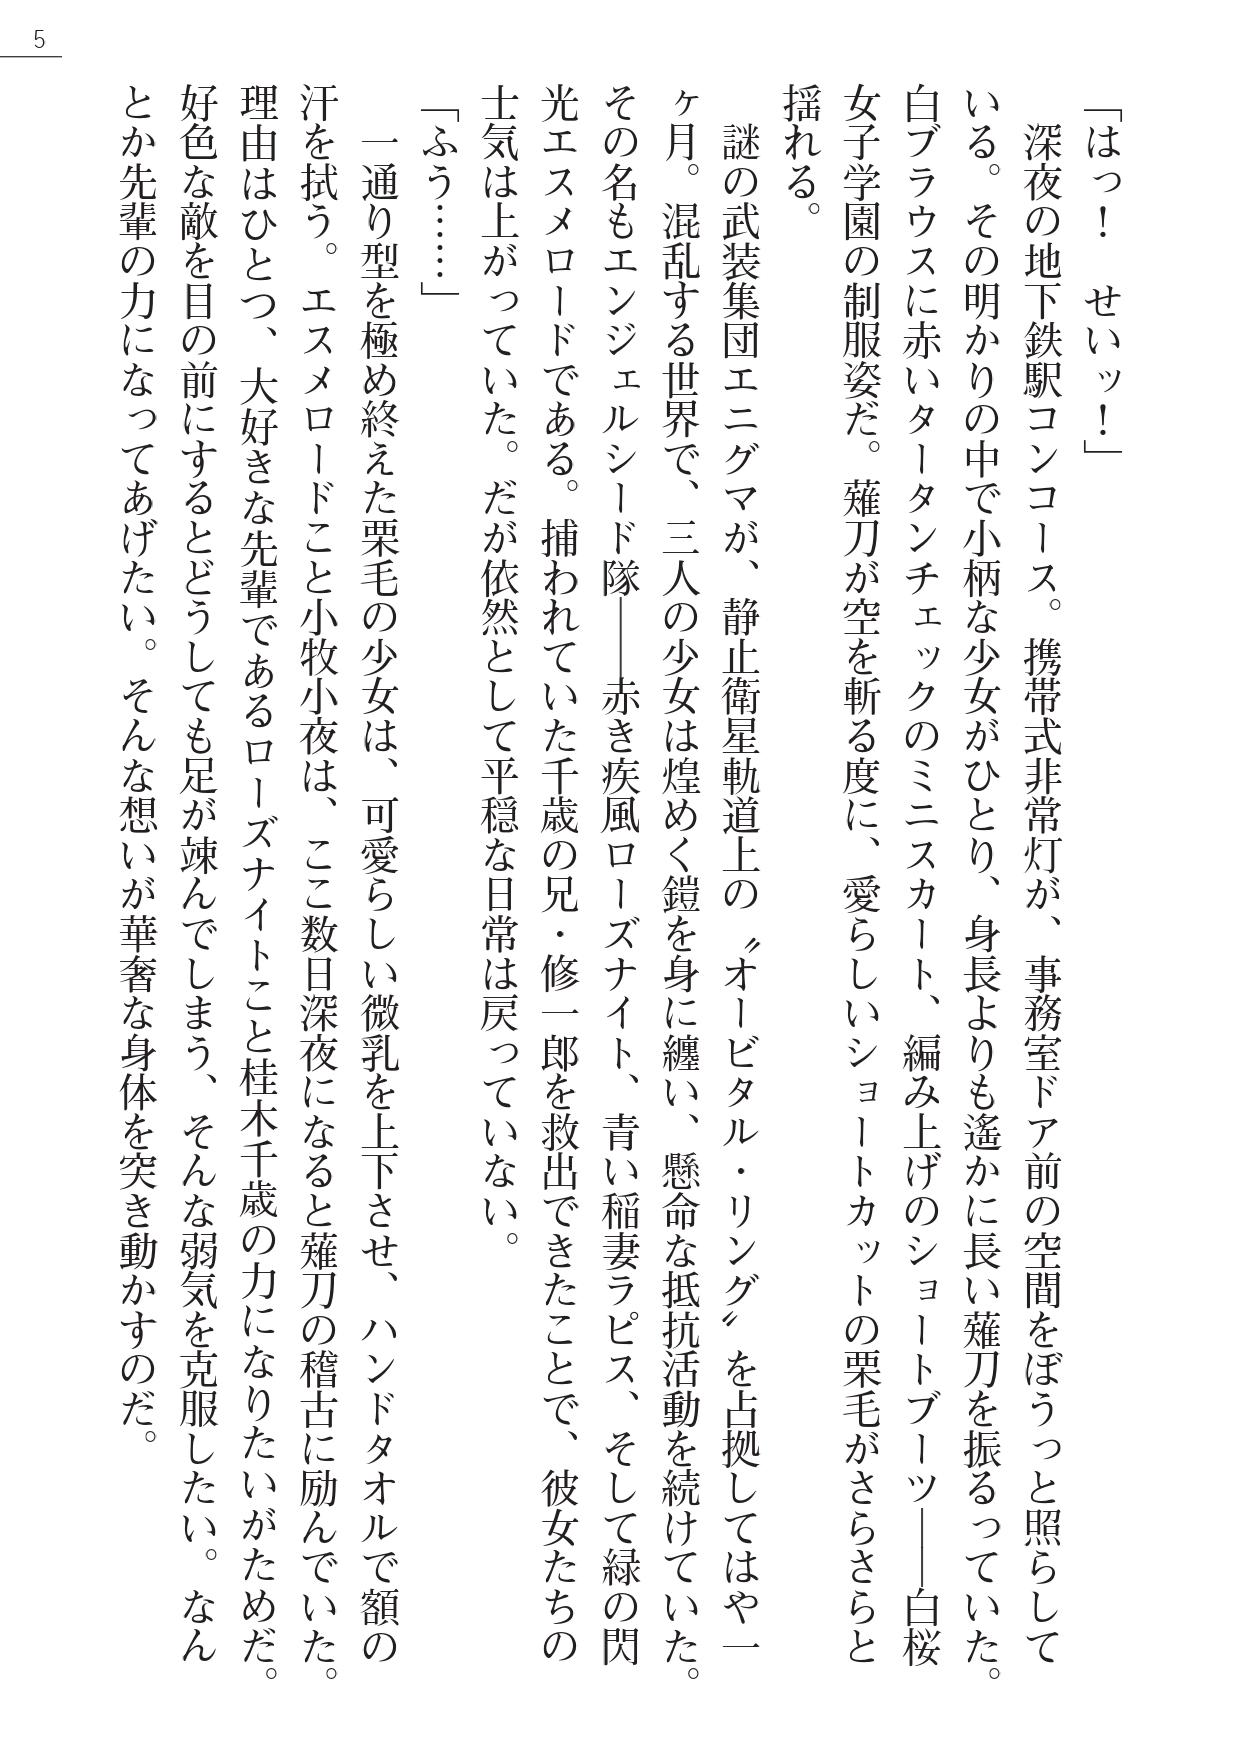 5
「はっ！　せいッ！」
　深夜の地下鉄駅コンコース。携帯式非常灯が、事務室ドア前の空間をぼうっと照らして
いる。その明かりの中で小柄な少女がひとり、身長よりも遙かに長い薙刀を振るっていた。
白ブラウスに赤いタータンチェックのミニスカート、編み上げのショートブーツ――白桜
女子学園の制服姿だ。薙刀が空を斬る度に、愛らしいショートカットの栗毛がさらさらと
揺れる。
　謎の武装集団エニグマが、静止衛星軌道上の〝オービタル・リング〟を占拠してはや一
ヶ月。混乱する世界で、三人の少女は煌めく鎧を身に纏い、懸命な抵抗活動を続けていた。
その名もエンジェルシード隊――赤き疾風ローズナイト、青い稲妻ラピス、そして緑の閃
光エスメロードである。捕われていた千歳の兄・修一郎を救出できたことで、彼女たちの
士気は上がっていた。だが依然として平穏な日常は戻っていない。
「ふう……」
　一通り型を極め終えた栗毛の少女は、可愛らしい微乳を上下させ、ハンドタオルで額の
汗を拭う。エスメロードこと小牧小夜は、ここ数日深夜になると薙刀の稽古に励んでいた。
理由はひとつ、大好きな先輩であるローズナイトこと桂木千歳の力になりたいがためだ。
好色な敵を目の前にするとどうしても足が竦んでしまう、そんな弱気を克服したい。なん
とか先輩の力になってあげたい。そんな想いが華奢な身体を突き動かすのだ。